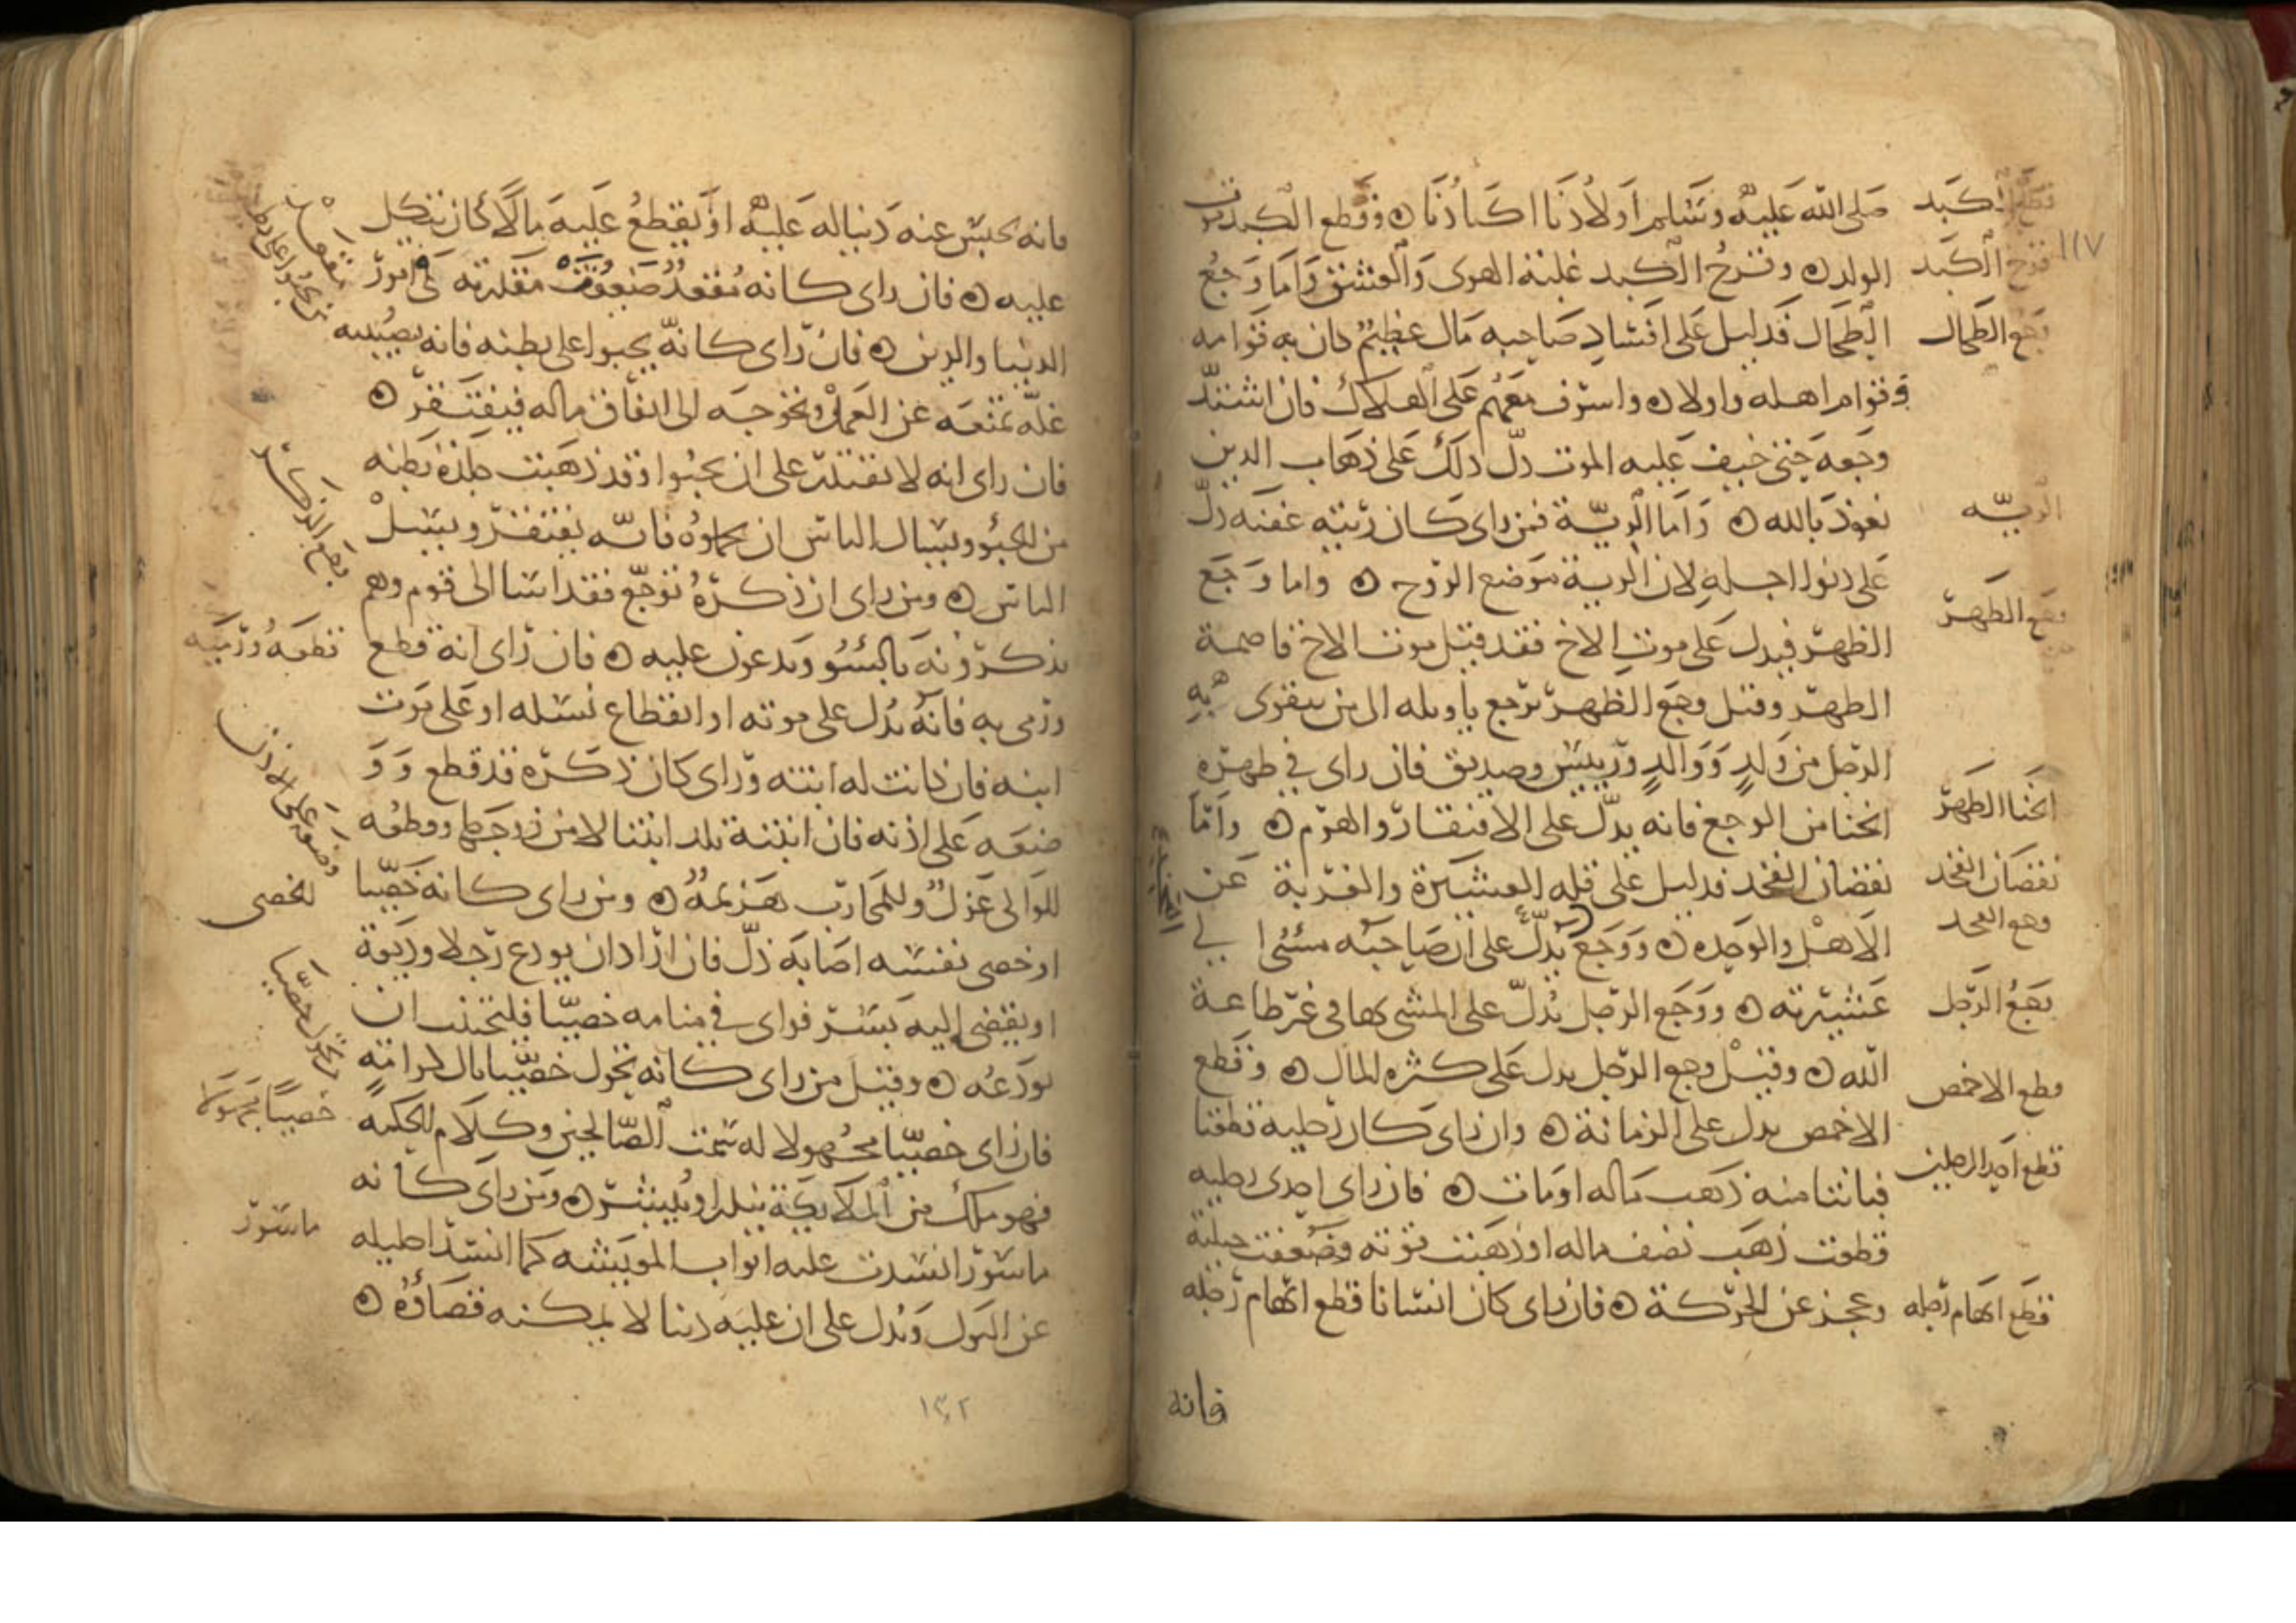 صلى الله عليه وسلم اولادنا اكبادنا ۞ وقطع الكبد موت
الولد ۞ وقرح الكبد غلبة الهوى والعشق واما وجع
الطحال فدليل على افساد صاحبه مال عظيم كان به قوامه
وقوام اهله واولاده واشرف معهم على الهلاك فان اشتد
وجعه حتى خيف عليه الموت دل ذلك على ذهاب الدين
نعوذ بالله ۞ واما الرية فمن راى كان ريته عفنه دل
على دنوا اجله لان الرية موضع الروح ۞ واما وجع
الظهر فيدل على موت الاخ فقد قيل موت الاخ قاصمة
الظهر وقيل وجع الظهر يرجع تاويله الى من يتقوى به
الرجل من ولد ووالد ورييس وصديق فان راى في ظهره
انحنا من الوجع فانه يدل على الافتقار والهرم ۞ واما
نقصان الفخد فدليل على قله العشيرة والغربة عن
الاهل والوحده ۞ ووجع يدل على ان صاحبه مسئ الى
عشيرته ۞ ووجع الرجل يدل على المشي بها في غير طاعة
الله ۞ وقيل وجع الرجل يدل على كثره المال ۞ وقطع
الاخمص يدل على الزمانة ۞ وان راى كان رجليه قطعتا
فبانتا منه ذهب ماله او مات ۞ فان راى احدى رجليه
قطعت ذهب نصف ماله او ذهبت قوته وضعفت حيلته
وعجز عن الحركة ۞ فان راى كان انسانا قطع ابهام رجله
فانه
قطع الكبد
١١٧
قرح الكبد
وجع الطحال
الرية
وجع الظهر
انحنا الظهر
نقصان الفخد
وجع الفخد
وجع الرجل
قطع الاخمص
قطع احد الرجلين
قطع ابهام رجله
فانه يحبس عنه دينا له عليه او يقطع عليه مالا كان يتكل
عليه ۞ فان راى كانه مقعد ضعفت مقدرته في امور
الدنيا والدين ۞ فان راى كانه يحبوا على بطنه فانه يصيبه
علة تمنعه عن العمل وتخوجه الى انفاق ماله فيفتقر ۞
فان راى انه لا يقتدر على ان يحبوا وقد ذهبت جلدة بطنه
من الحبو ويسال الناس ان يحملوه فانه يفتقر ويسل
الناس ۞ ومن راى ان ذكره توجع فقد اسا الى قوم وهم
يذكرونه بالسو ويدعون عليه ۞ فان راى انه قطع
ورمى به فانه يدل على موته او انقطاع نسله او على موت
ابنه فان كانت له ابنته وراى كان ذكره قد قطع وو
ضعه على اذنه فان ابنته تلد ابنتا لا من زوجها وقطعه
للوالى عزل وللمحارب هزيمه ۞ ومن راى كانه خصيا
او خصى نفسه اصابه ذل فان اراد ان يودع رجلا وديعة
او يفضى اليه بسر فراى في منامه خصيا فليتجنب ان
يودعه ۞ وقيل من راى كانه تحول خصيا نال كرامته
فان راى خصيا مجهولا له سمت الصالحين وكلام الحكمة
فهو ملك من الملايكة ينذر او يبشر ۞ ومن راى كانه
ماسور انسدت عليه ابواب المعيشه كما انسد احليله
عن البول ويدل على ان عليه دينا لا يمكنه قضاؤه ۞
وجع الذكر
قطعه ورميه
وضعه على الاذن
الخصي
تحول خصيا
خصيا مجهولا
ماسور
١٣٢